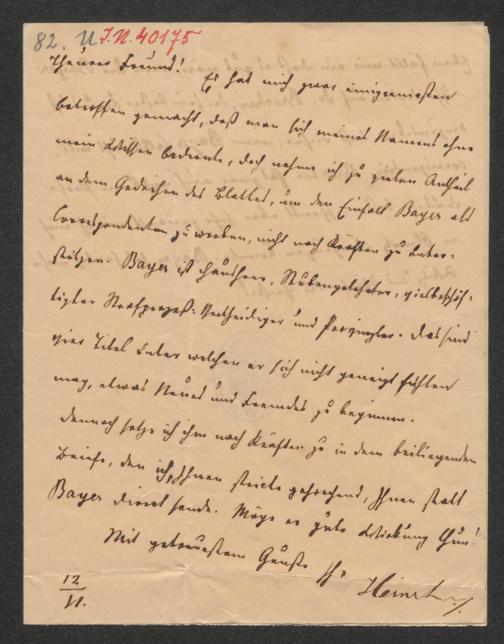 82. U. I.N. 40175
Theurer Freund!
Es hat mich zwar einigermaßen
betroffen gemacht, daß man sich meines Namens ohne
mein Wissen bediente, doch nehme ich zu vielen Antheil
an dem Gedeihen des Blattes, um den Einfall Bayer als
Correspondenten zu werben, nicht nach Kräften zu unter-
stützen. Bayer ist Hausherr, Stubengelehrter, vielbeschäf-
tigter Strafprozeß-Vertheidiger und . Das sind
vier Titel unter welchen er sich nicht geneigt fühlen
mag, etwas Neues und Fremdes zu beginnen.
Dennoch setze ich ihm nach Kräften zu in dem beiliegenden
Briefe, den ich, Ihnen stricte gehorchend, Ihnen statt
Bayer direct sende. Möge er gute Wirkung thun!
Mit getreuestem Gruße Ihr
12